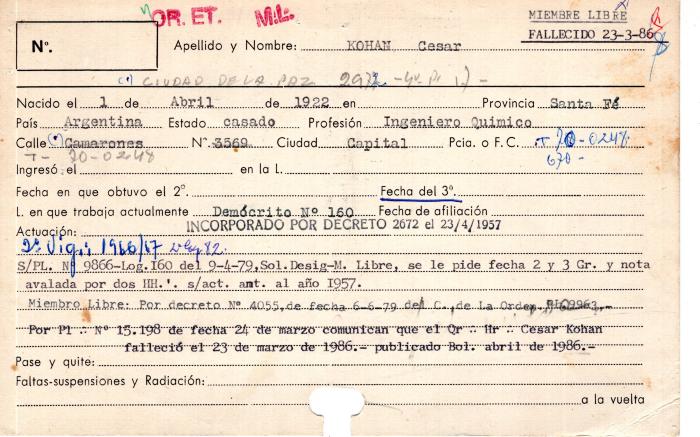 OR. ET. M.L.
MIEMBRE LIBRE
FALLECIDO 23-3-86
N°.
Apellido y Nombre: KOHAN Cesar
CIUDAD DE LA PAZ 2972 -4° P.
Nacido el 1 de Abril de 1922 en Provincia Santa Fé
País Argentina Estado casado Profesión Ingeniero Quimico
Calle Camarones N° 3569 Ciudad Capital Pcia. o F.C. T 70-0248
T- 70-0248
Ingresó el en la L.
Fecha en que obtuvo el 2°. Fecha del 3°.
L. en que trabaja actualmente Demócrito Nº 160 Fecha de afiliación
Actuación: INCORPORADO POR DECRETO 2672 el 23/4/1957
2° Vig. 1966/67
S/PL. Nº 9866-Log.I60 del 9-4-79,Sol.Desig-M. Libre, se le pide fecha 2 y 3 Gr. y nota
avalada por dos HH.'. s/act. ant. al año 1957.
Miembro Libre: Por decreto Nº 4055,de fecha 6-6-79 del C., de La Orden
Por Pl ∴ Nº 15.198 de fecha 24 de marzo comunican que el Qr ∴ Hr ∴ Cesar Kohan
falleció el 23 de marzo de 1986.- publicado Bol. abril de 1986.-
Pase y quite:
Faltas-suspensiones y Radiación:
a la vuelta